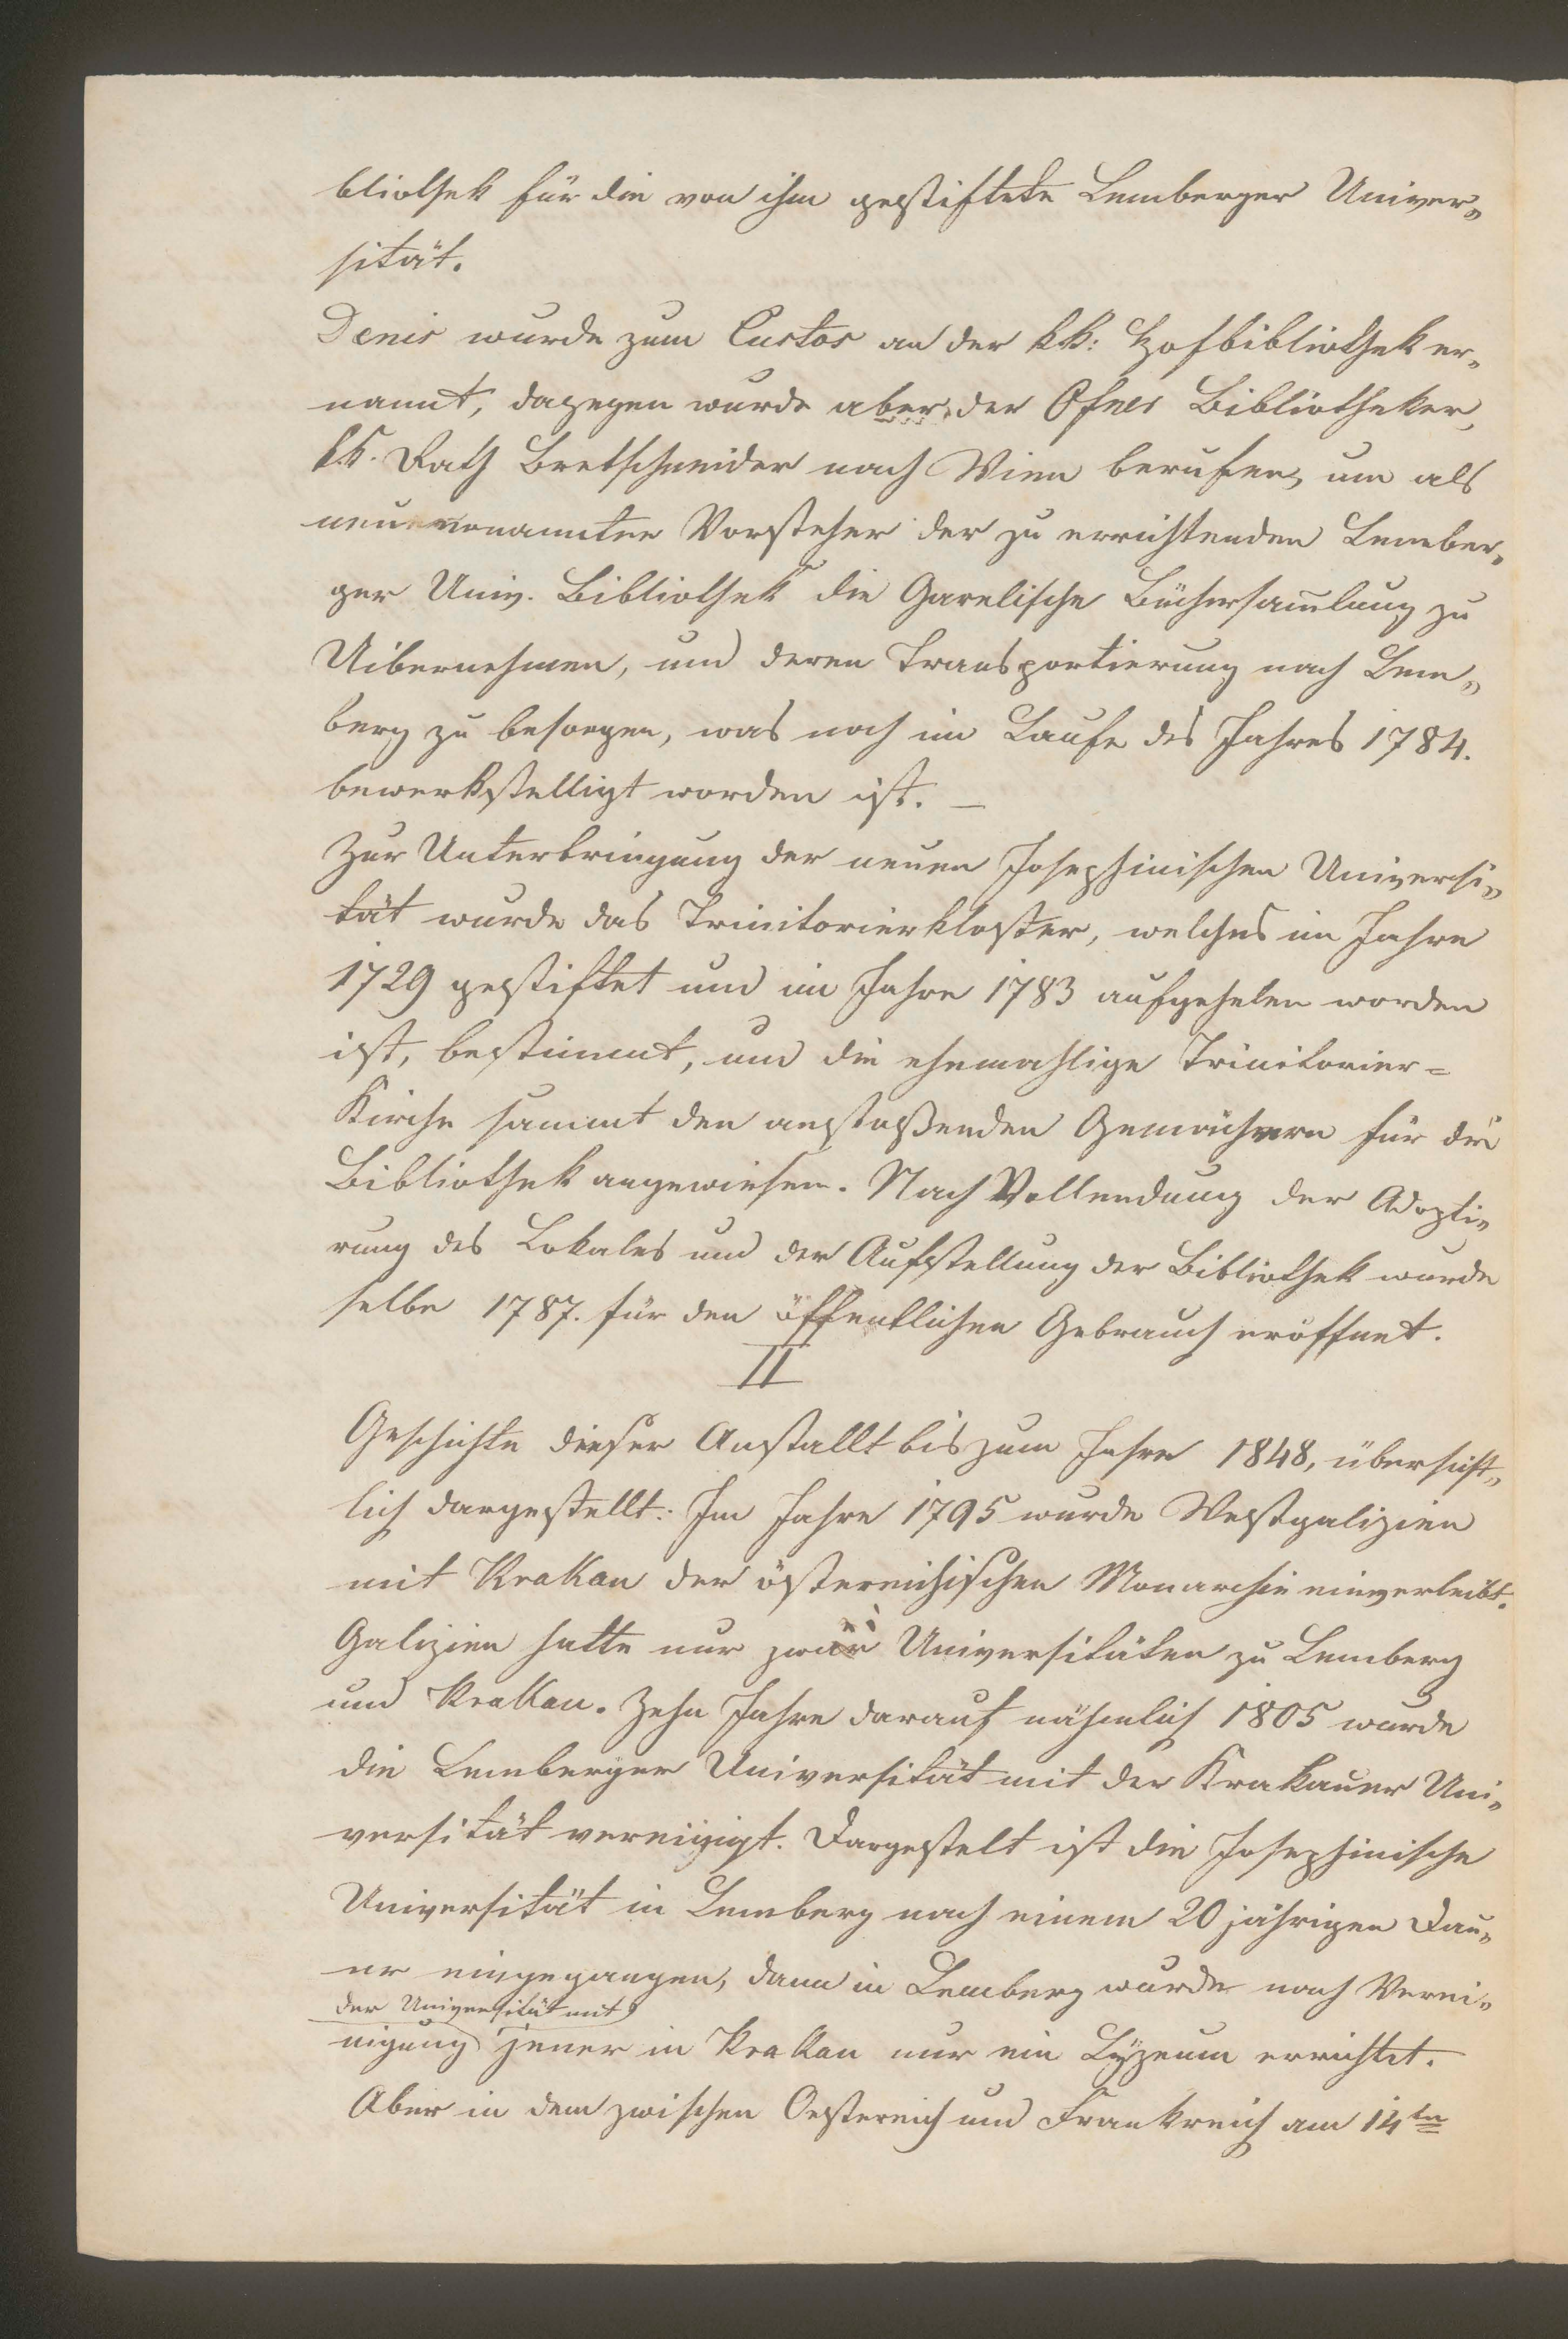 bliothek für die von ihm gestiftete Lemberger Univer„
sität.
Denis wurde zum Custos an der kk: Hofbibliothek er„
nannt, dagegen wurde aber der Ofner Bibliotheker,
k.k. Rath Bretschneider nach Wien berufen, um als
neu ernannter Vorsteher der zu errichtenden Lember„
ger Univ. Bibliothek die Garelische Büchersam̄lung zu
Uibernehmen, und deren Transportierung nach Lem„
berg zu besorgen, was noch im Laufe des Jahres 1784.
bewerkstelligt worden ist. —
Zur Unterbringung der neuen Josephinischen Universi„
tät wurde das Trinitorierkloster, welches im Jahre
1729 gestiftet und im Jahre 1783 aufgehoben worden
ist, bestimmt, und die ehemahlige Trinitorier=
Kirche sammt den anstoßenden Gemächern für die
Bibliothek angewiesen. Nach Vollendung der Adopti„
rung des Lokales und der Aufstellung der Bibliothek wurde
selbe 1787. für den öffentlichen Gebrauch eröffnet.
II
Geschichte dieser Anstallt bis zum Jahre 1848, übersicht„
lich dargestellt: Im Jahre 1795 wurde Westgalizien
mit Krakau der östereichischen Monarchie einverleibt.
Galizien hatte nur zwei Universitäten zu Lemberg
und Krakau. Zehn Jahre darauf nähmlich 1805 wurde
die Lemberger Universität mit der Krakauer Uni„
versität vereinigt. Dargestelt ist die Josephinische
Universität in Lemberg nach einem 20 jährigen Dau„
er eingegangen, dann in Lemberg wurde nach Verei„
der Universität mit
nigung jener in Krakau nur ein Lÿzeum errichtet.
Aber in dem zwischen Oestereich und Frankreich am 14ten